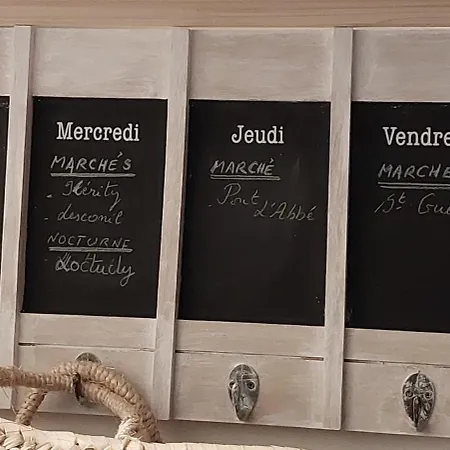 Mercredi
MARCHÉS
- Stérity
- Lesconil
NOCTURNE
- Loctudy
Jeudi
MARCHÉ
- Pont L'Abbé
Vendre
MARCHE
St Gue